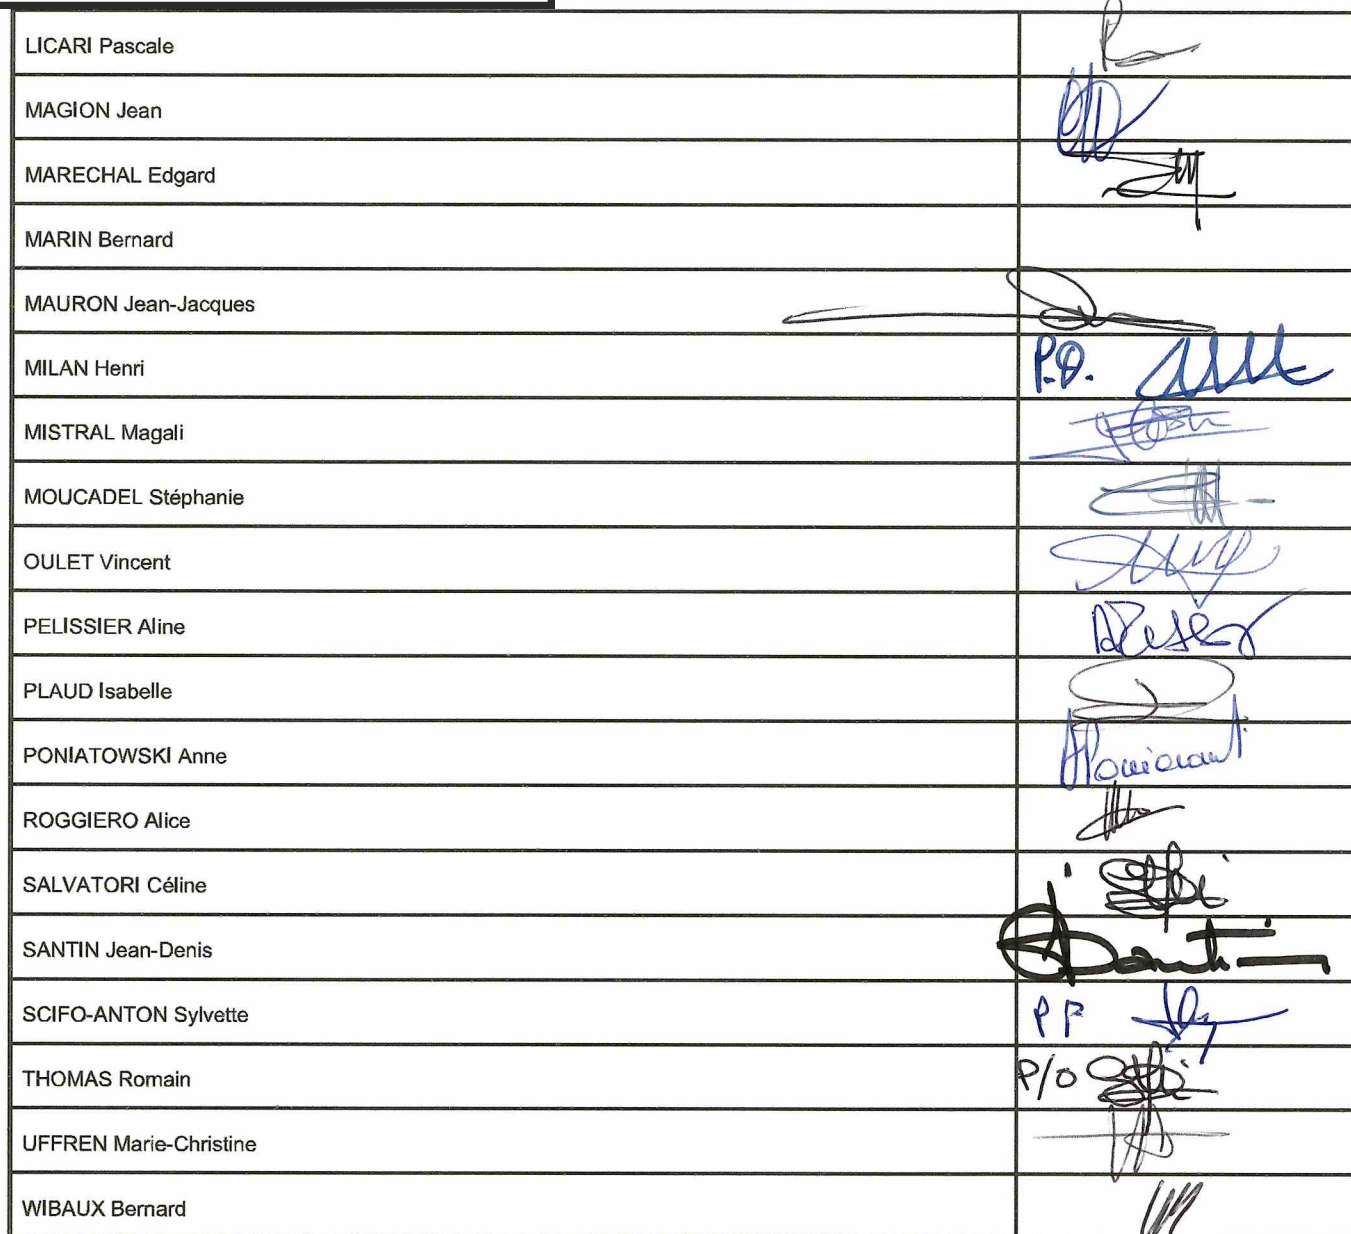 LICARI Pascale
MAGION Jean
MARECHAL Edgard
MARIN Bernard
MAURON Jean-Jacques
MILAN Henri P.O.
MISTRAL Magali
MOUCADEL Stéphanie
OULET Vincent
PELISSIER Aline
PLAUD Isabelle
PONIATOWSKI Anne
ROGGIERO Alice
SALVATORI Céline
SANTIN Jean-Denis Santin
SCIFO-ANTON Sylvette PP
THOMAS Romain P/O
UFFREN Marie-Christine
WIBAUX Bernard